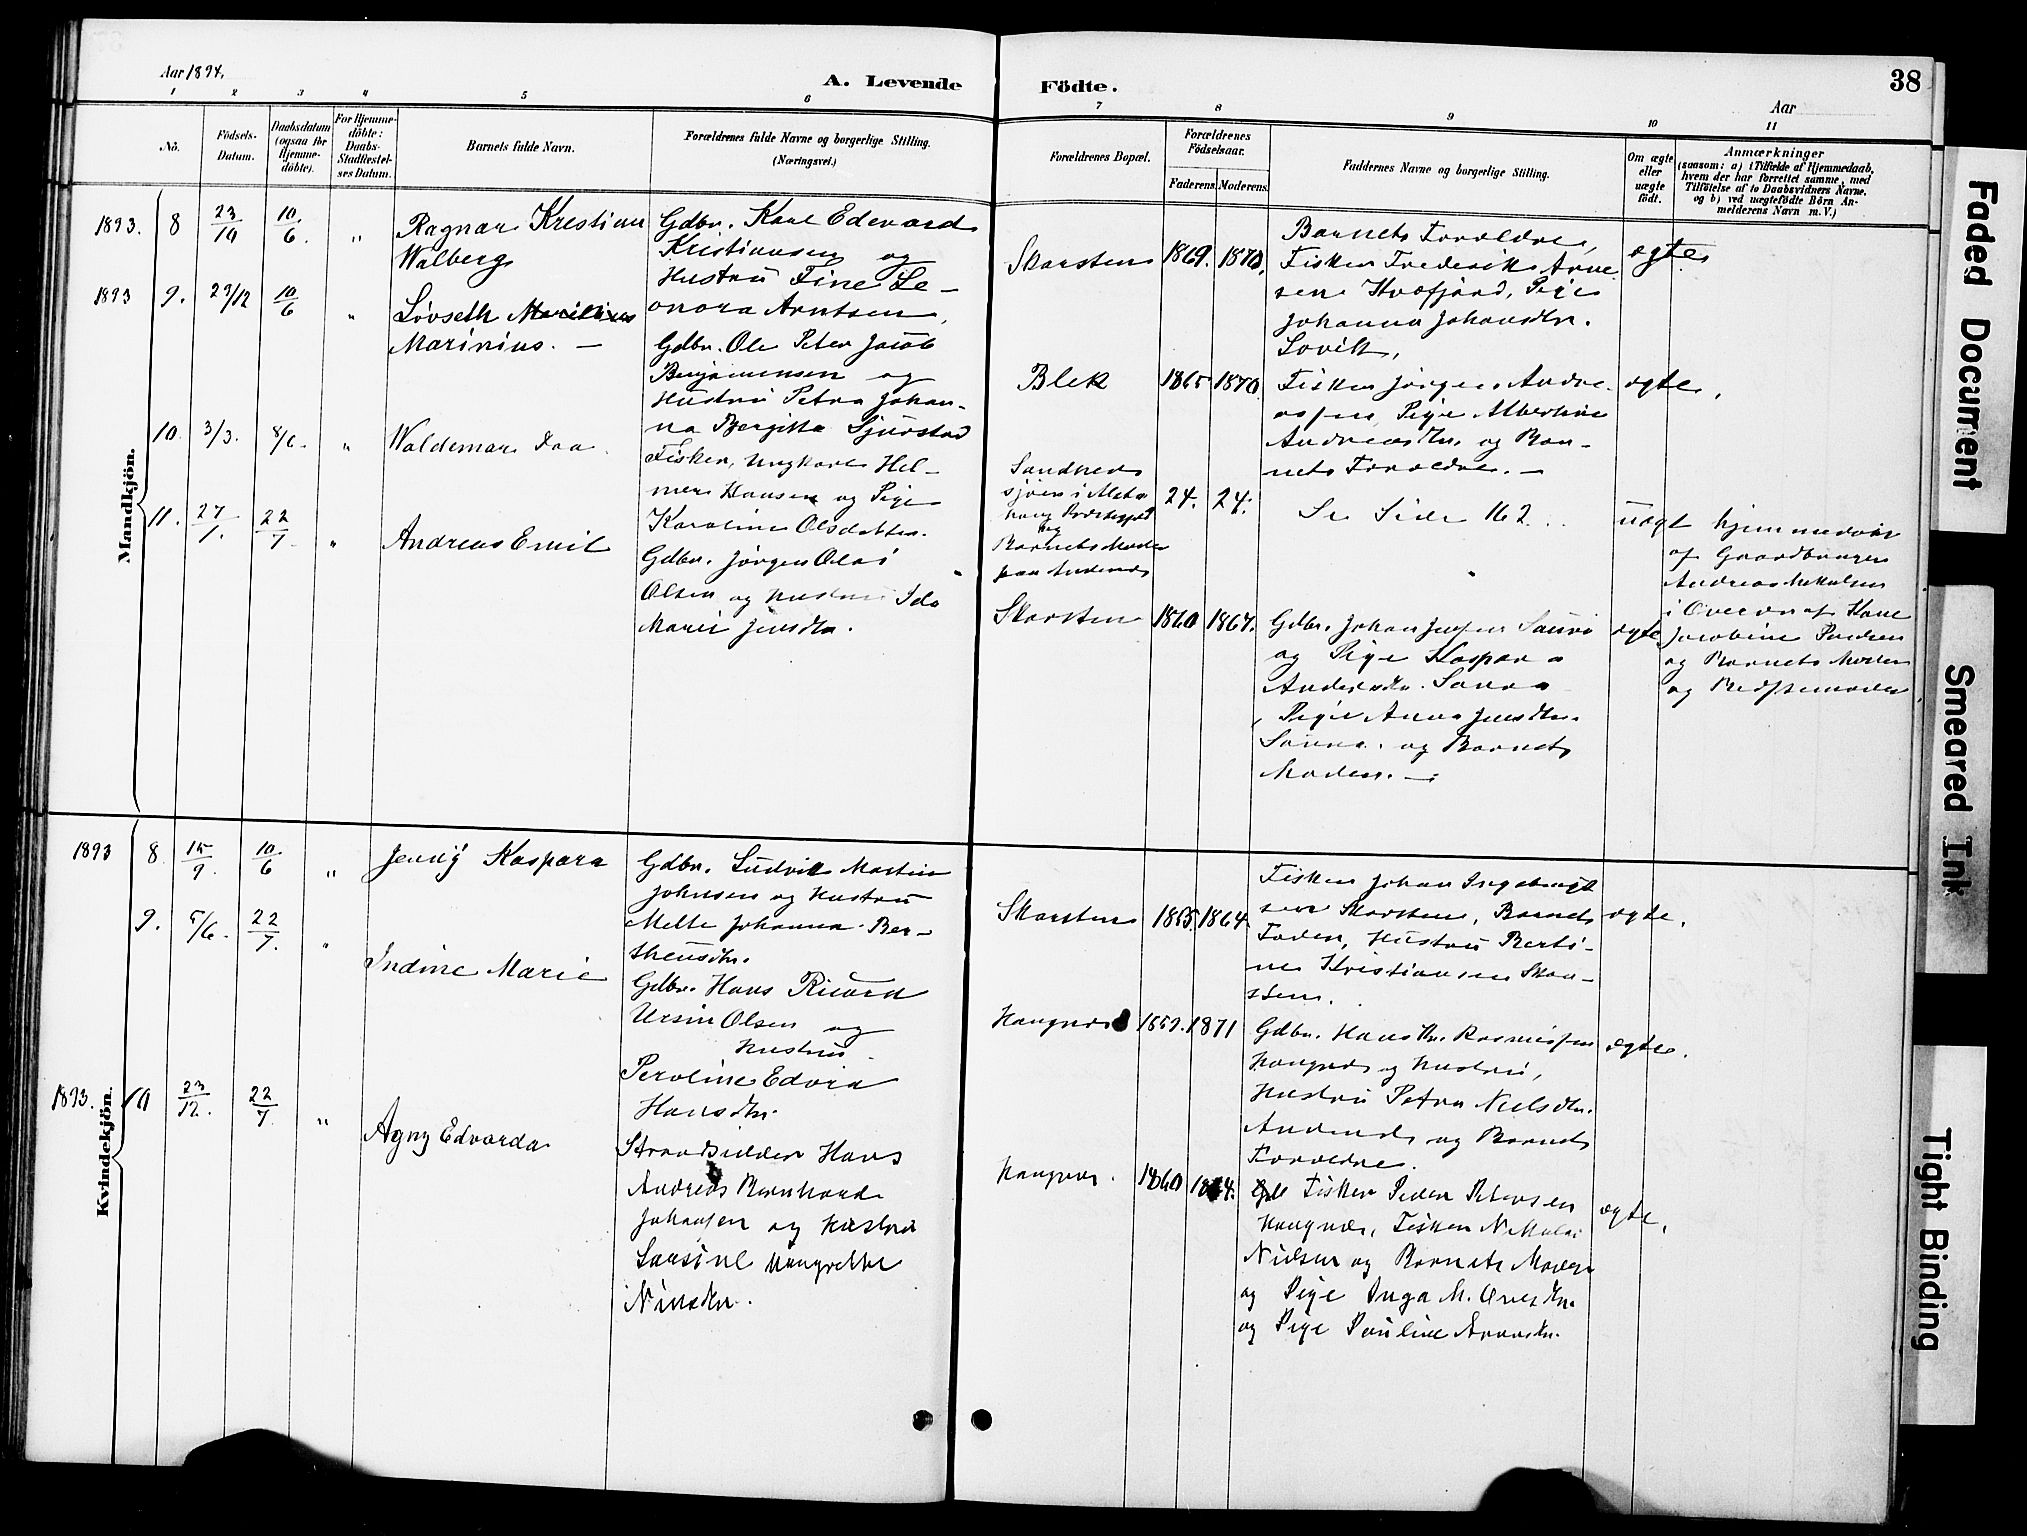 Aar 1894.
A. Levende
Födte.
Aar
38
1 2 3 4 5 6 7 8 9 10 11
No.
Födsels-
Datum.
Daabsdatum
(ogsaa for
Hjemme-
döbte).
For Hjemme-
döbte:
Daabs-
Stadfæstel-
ses Datum.
Barnets fulde Navn.
Forældrenes fulde Navne og borgerlige Stilling.
(Næringsvei.)
Forældrenes Bopæl.
Forældrenes
Födselsaar.
Faderens. Moderens.
Faddernes Navne og borgerlige Stilling.
Om ægte
eller
uægte
født.
Anmærkninger
(saasom: a) i Tilfælde af Hjemmedaab,
hvem der har forrettet samme, med
Tilføielse af to Daabsvidners Navne,
og b) ved uægtefødte Børn An-
melderens Navn m. V.)
Mandkjön.
1893. 8 23/10 10/6. "
Ragnar Kristian
Walberg
Gdbr. Karl Edevard
Kristiansen og
Hustru Fine Le-
onora Arntsen,
Skarsten 1869. 1870.
Barnets Forældre,
Fisker Frederik Arne
sen Kvæfjord, Pige
Johanna Johansdtr.
Løvik,
ægte
1893 9. 29/12 10/6 "
Løvseth
Marinius. —
Gdbr. Ole Peter Jacob
Benjaminsen og
Hustru Petra Johan-
na Bergitte Sjurstad
Blek 1865 1870
Fisker Jørgen Andre-
assen, Pige Albertine
Andreasdtr. og Bar-
nets Forældre. —
ægte,
10. 3/3. 8/6. "
Waldemar Daa.
Fisker, Ungkarl Hel-
mer Hansen og Pige
Karoline Olsdatter.
Sandnes
sjøen i Alsta
houg Præstegjeld
og
Barnets Moder
paa Andenes
24. 24.
Se Side 162...
uægt
hjemmedøbt
af Gaardbruger
Andreas Nikolaisen
i Overvær af Kone
Jacobine Paulsen
og Barnets Moder
og Bedstemoder
11. 27/1. 22/7. "
Andreas Emil
Gdbr. Jørgen Olai
Olsen og Hustru Ida
Marie Jensdtr.
Skarsten 1860 1867.
Gdbr. Johan Jensen Saura
og Pige Kaspara
Andersdtr. Saura
, Pige Anna Jensdtr.
Saura. og Barnets
Moder. —
ægte
Kvindekjön.
1893 8. 15/9. 10/6 "
Jenny Kaspara
Gdbr. Ludvik Martin
Johnsen og Hustru
Melte Johanna Ber-
theusdtr.
Skarsten 1855. 1864.
Fisker Johan Ingebrigt
sen Skarsten, Barnets
Fader, Hustru Berti-
ne Kristiansen Skar-
sten.
ægte.
9. 5/6. 22/7. "
Indine Marie
Gdbr. Hans Ricard
Ursin Olsen og
Hustru
Peroline Edvia
Hansdtr.
Haugnes 1859. 1871
Gdbr. Hans Chr. Rasmussen
Haugnes og Hustru,
Hustru Petra Nielsdtr.
Andenes og Barnets
Forældre.
ægte.
1893. 10 23/12. 22/7. "
Agny Edvarda
Strandsidder Hans
Andreas Bernhard
Johansen og Hustru
Larsine Margrethe
Nilsdtr.
Haugnes. 1860 1864.
Fisker Peder Petersen
Haugnes, Fisker Nikolai
Nielsen og Barnets Moder
og Pige Inga M. Olesdtr.
og Pige Pauline Aronsdtr.
ægte.
Faded Document
Smeared Ink
Tight Binding